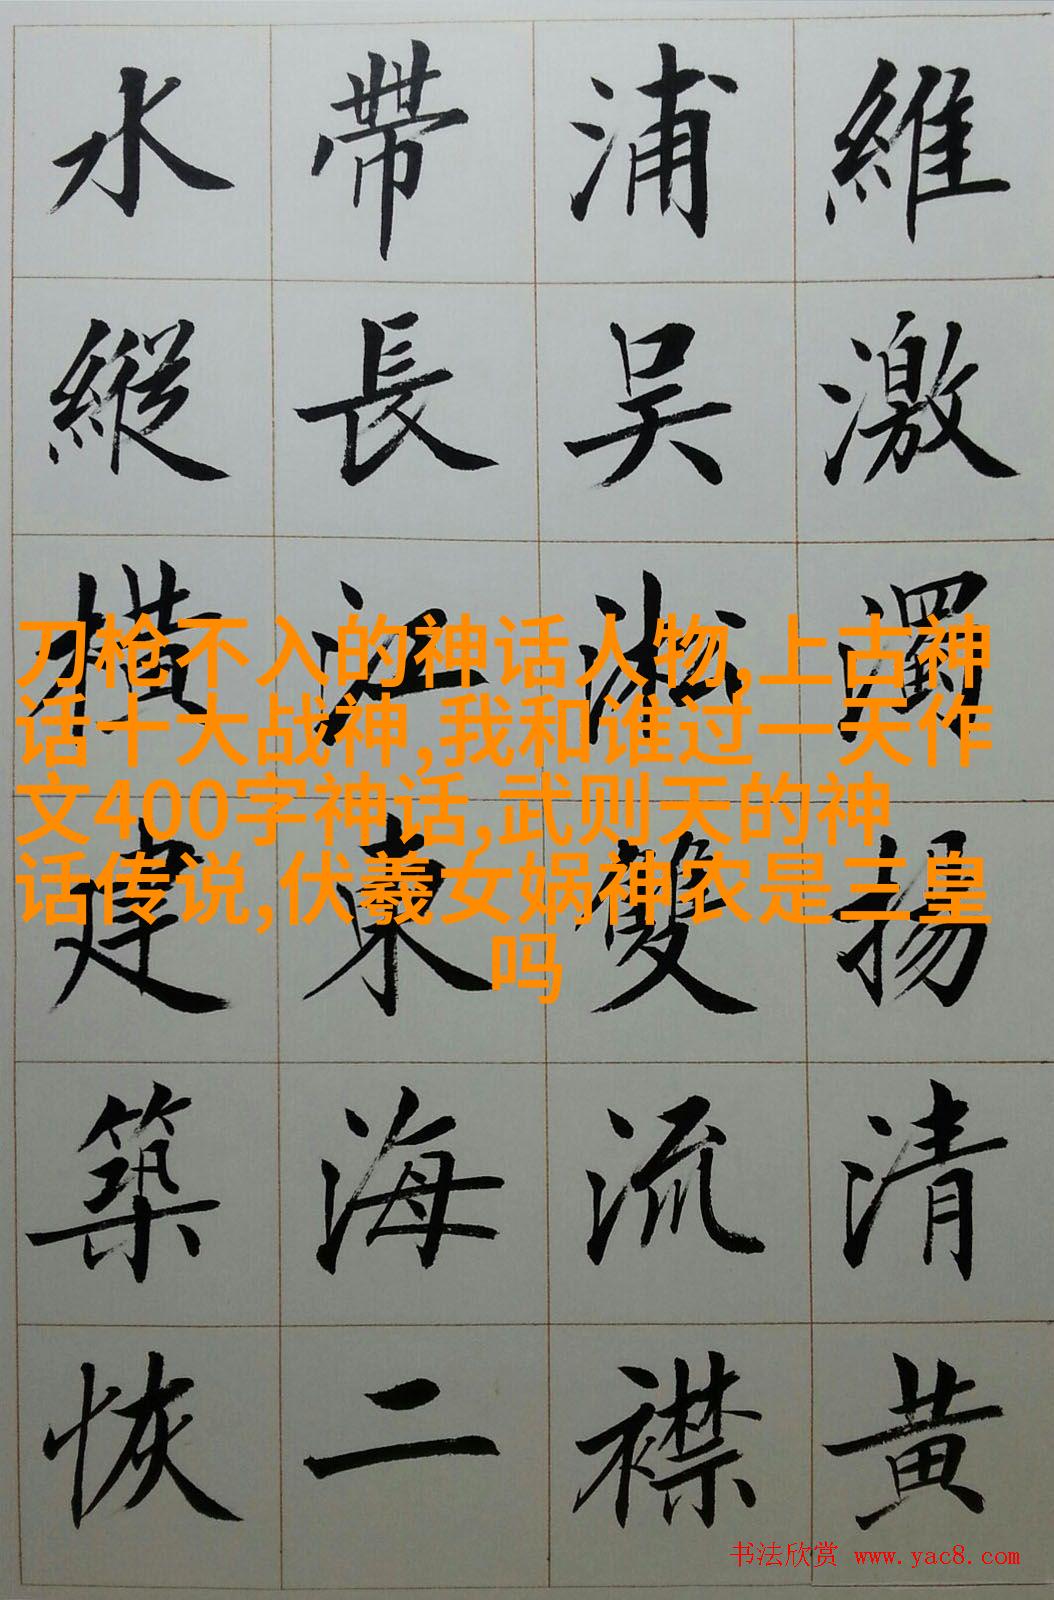 維激濁揚清黃
浦吳淞雙流襟
帶長江東海二
水縱橫建築恢
刀枪不入的神话人物,上古神
话十大战神,我和谁过一天作
文400字神话,武则天的神
话传说,伏羲女娲神农是三皇
吗
书法欣赏 www.yac8.com